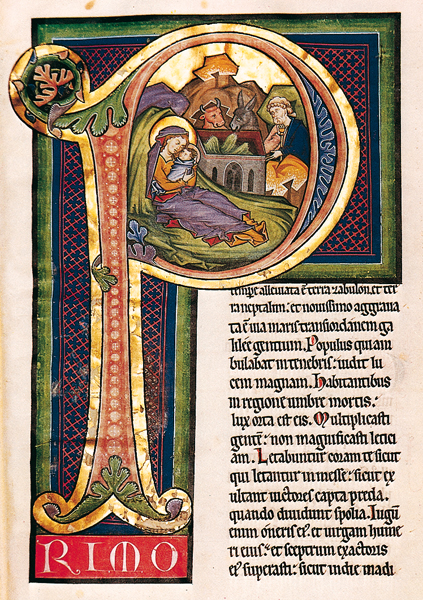 P
RIMO
tempe alleuiata ē terra zabulon: et ter
ra neptalim: et nouissimo aggraua
ta ē uia maris transiordanem ga
lilee gentium. Populus qui am
bulabat in tenebris: uidit lu
cem magnam. Habitantibus
in regione umbre mortis:
lux orta est eis. Multiplicasti
gentē: non magnificasti letici
am. Letabuntur coram te sicut
qui letantur in messe: sicut ex
ultant uictores capta preda.
quando diuidunt spolia. Iugū
enim oneris eꝰ: et uirgam hume
ri eius: et sceptrum exactoris
eꝰ superasti: sicut in die madi